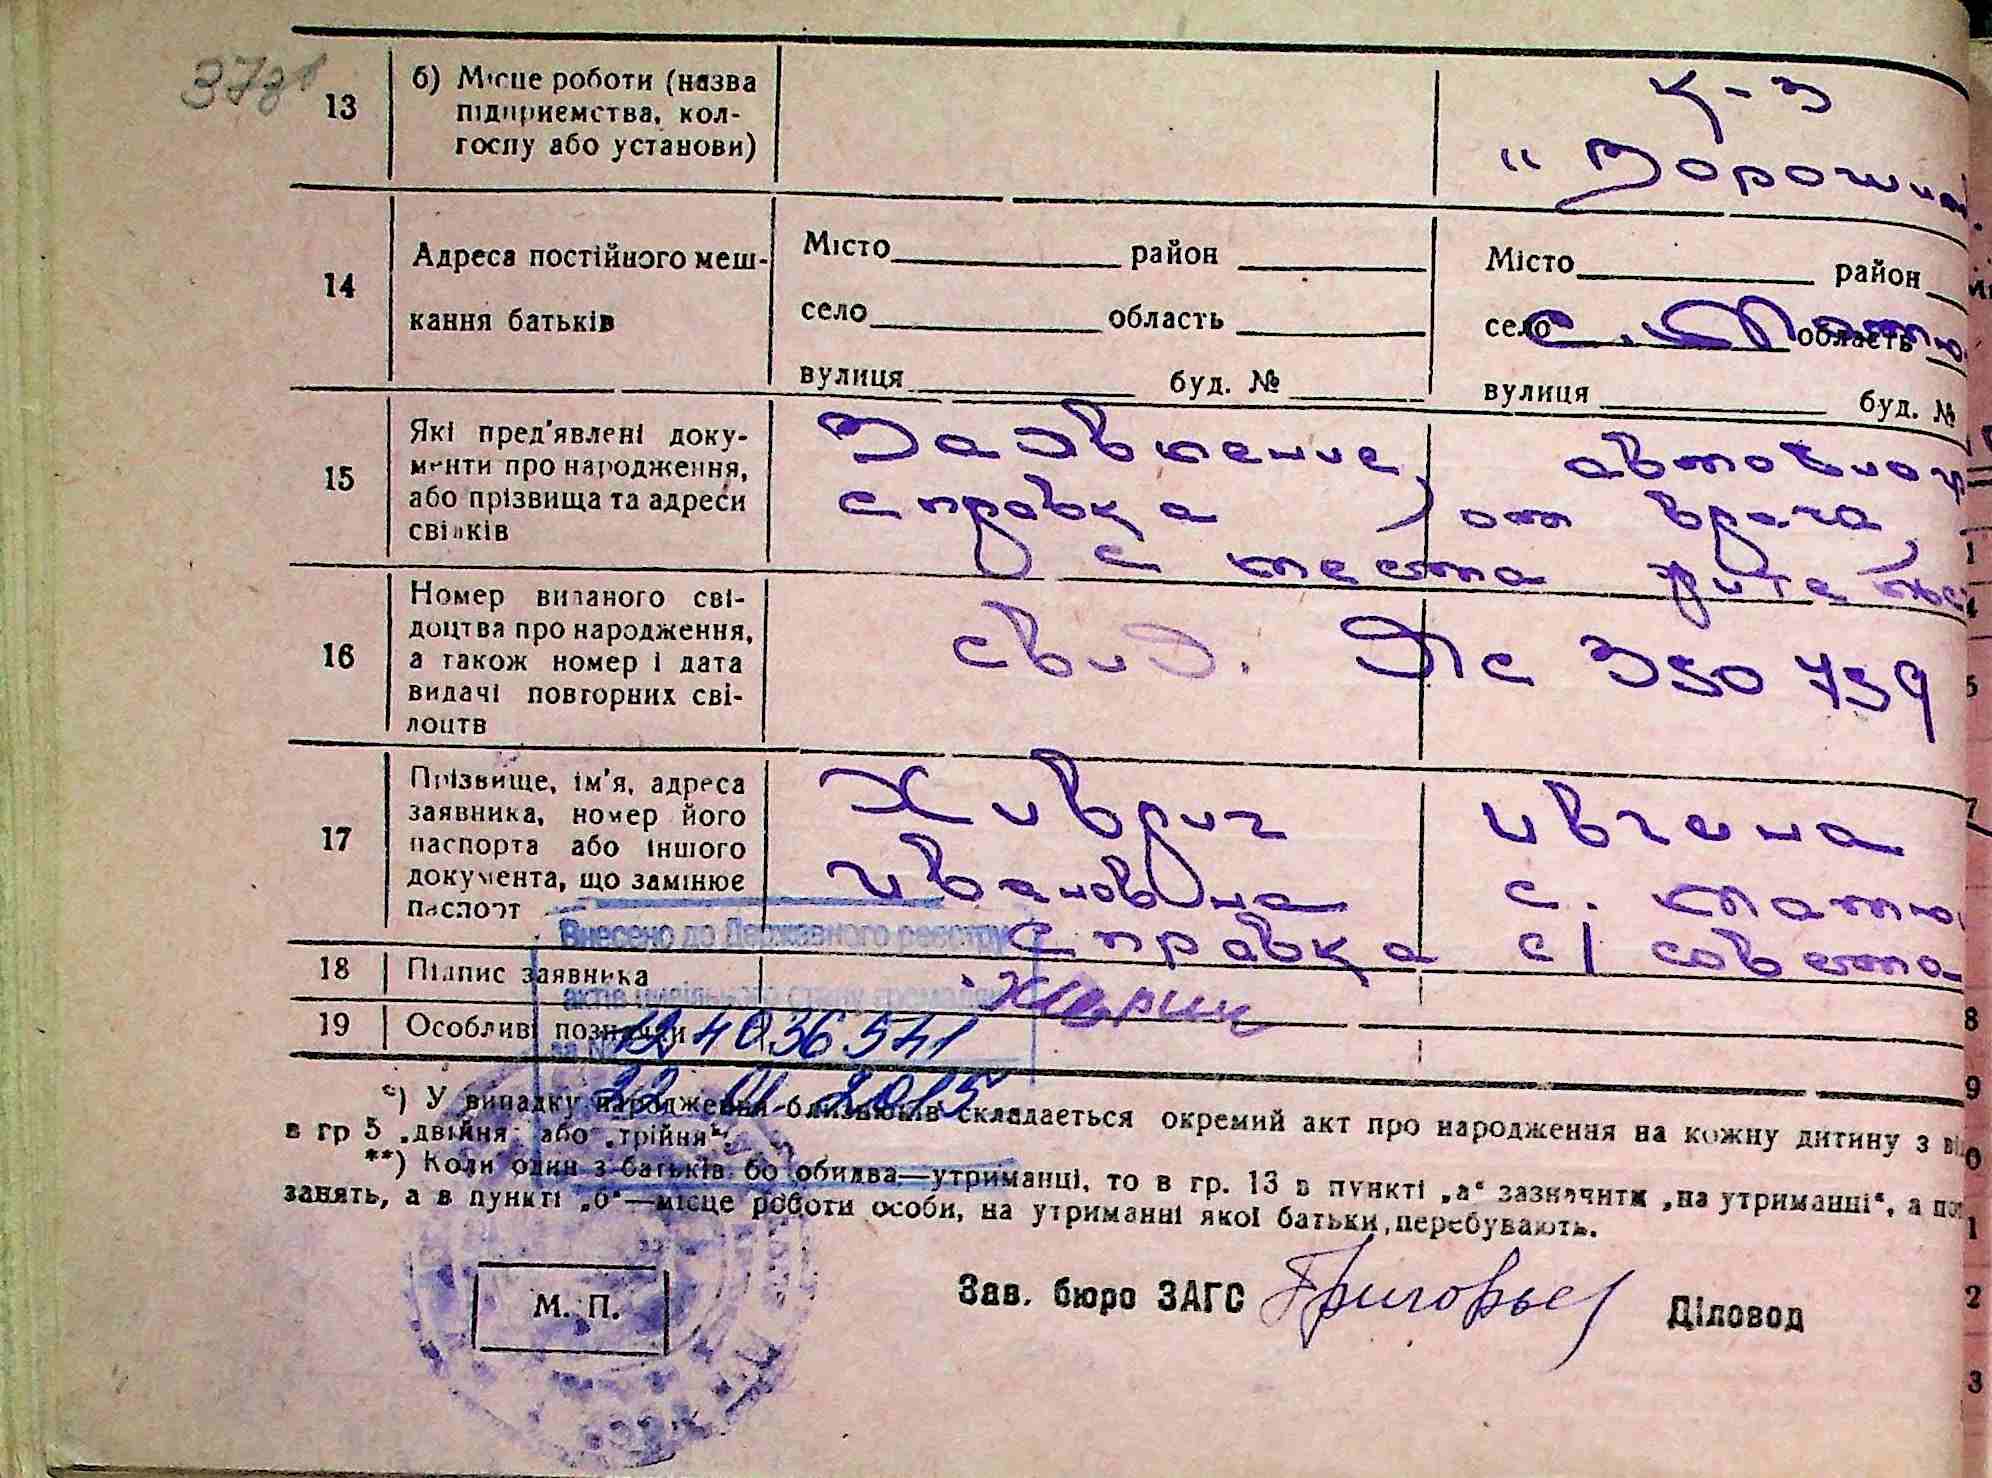 37зв
13
б) Місце роботи (назва
підприємства, кол-
госпу або установи)
к-з
"Ворошил
14
Адреса постійного меш-
кання батьків
Місто район
село область
вулиця буд. №
Місто район
село с. область
вулиця буд. №
15
Які пред'явлені доку-
менти про народження,
або прізвища та адреси
свідків
Заявление, автобиогр
справка от врача,
с места жительс
16
Номер виданого сві-
доцтва про народження,
а також номер і дата
видачі повторних сві-
доцтв
свид. 350739
17
Прізвище, ім'я, адреса
заявника, номер його
паспорта або іншого
документа, що замінює
паспорт
Живрич ивгена
ивановна с.
справка с/совета
Внесено до Державного реєстру
18
Підпис заявника
актів цивільного стану громадян
19
Особливі позначки
за №
4036541
22 01 2015
*) У випадку народження близнюків складається окремий акт про народження на кожну дитину з
в гр 5 „двійня" або „трійня".
**) Коли один з батьків або обидва—утриманці, то в гр. 13 в пункті „а" зазначити „на утриманні", а
занять, а в пункті „б"—місце роботи особи, на утриманні якої батьки перебувають.
М. П.
Зав. бюро ЗАГС
Григорьев
Діловод